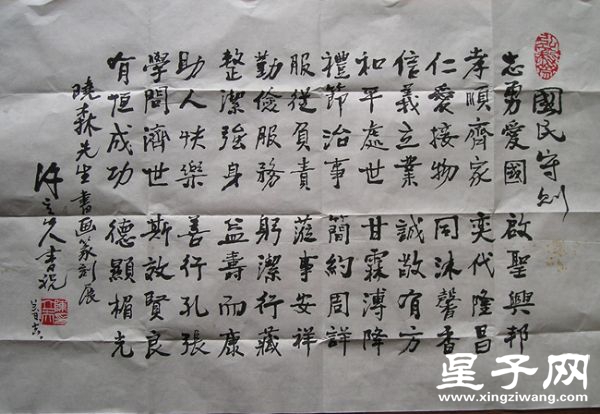 國民守則
忠勇愛國 啟聖興邦
孝順齊家 奕代隆昌
仁愛接物 同沐馨香
信義立業 誠敬有方
和平處世 甘霖溥降
禮節治事 簡約周詳
服從負責 蒞事安祥
勤儉服務 躬潔行藏
整潔強身 益壽而康
助人快樂 善行孔張
學問濟世 斯效賢良
有恒成功 德顯楣光
曉森先生書画篆刻展
人書祝
星子网
www.xingziwang.com